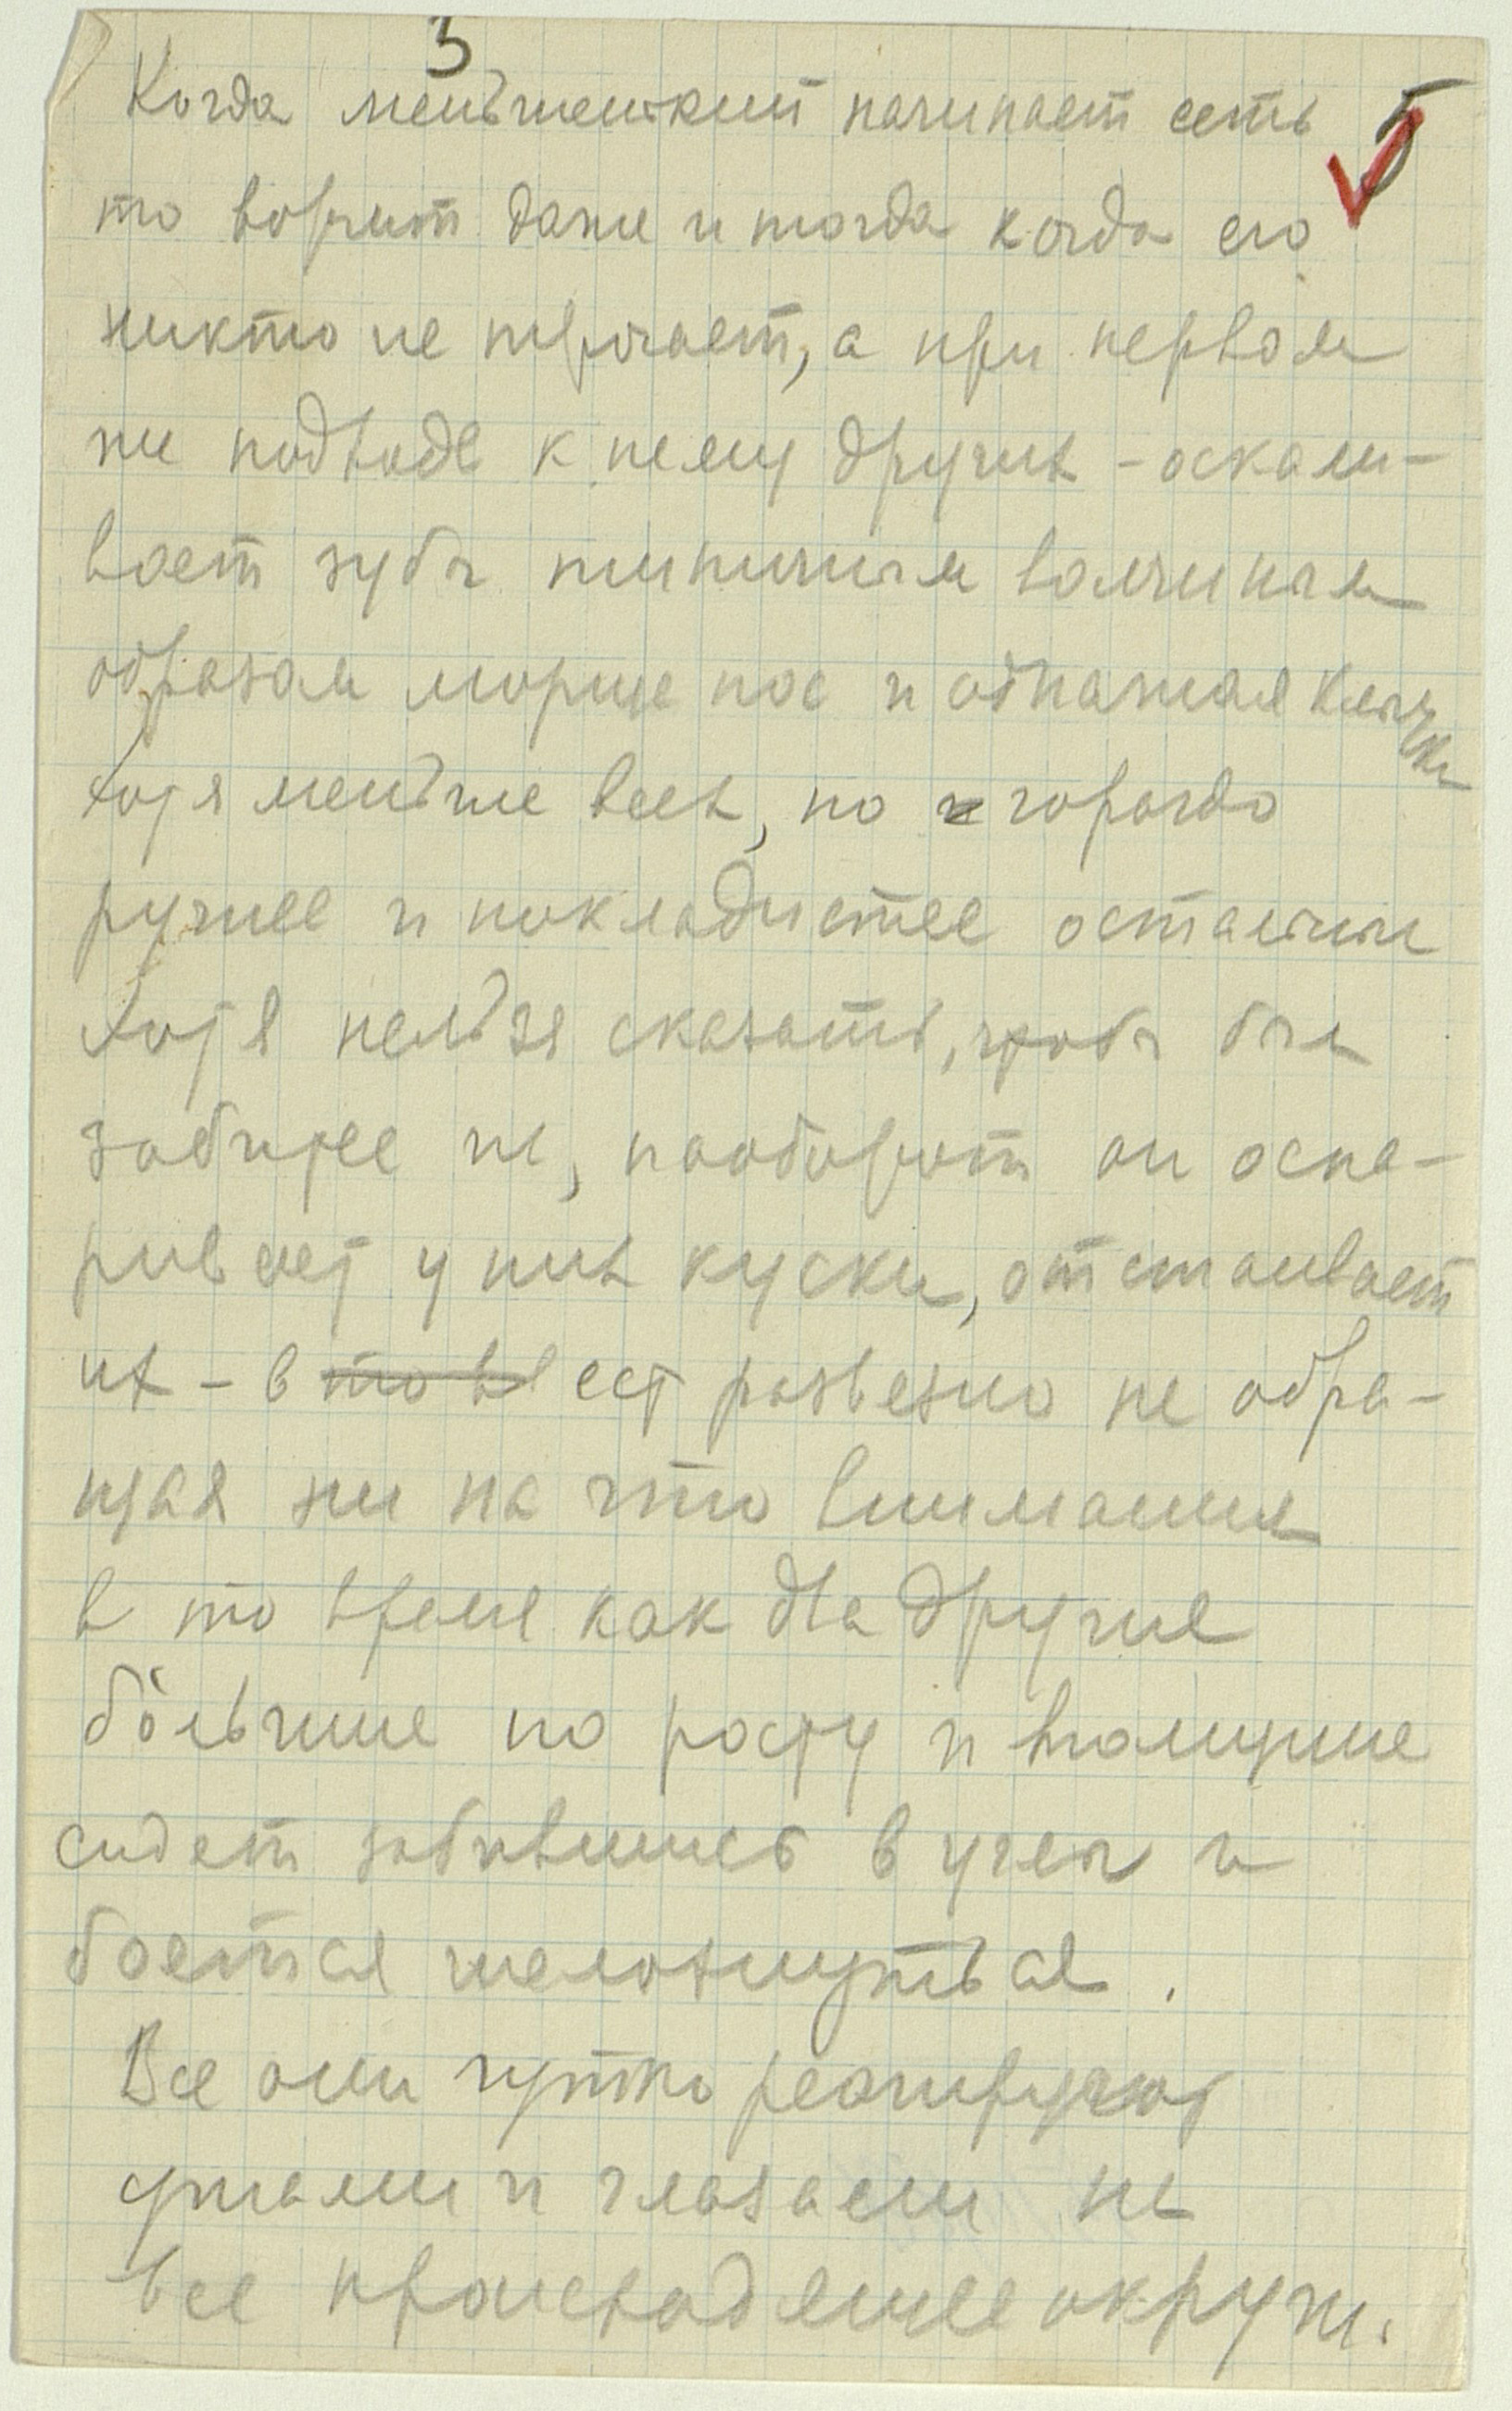 3
Когда меньшенький начинает есть 5
то ворчит даже и тогда когда его
никто не трогает, а при первом
же подходе к нему других - оскали-
вает зубы типичным волчиным
образом морще нос и обнажая клычки
Хотя меньше всех, но и гораздо
ручнее и покладистее остальных
Хотя нельзя сказать, чтобы был
забитее их, наоборот он оспа-
ривает у них куски, отстаивает
их - в то в ест развезно не обра-
щая ни на что внимания
в то время как два другие
бо́льшие по росту и толщине
сидят забившись в углы и
боятся шелохнуться.
Все они чутко реагируют
ушами и глазами на
все происходящее окруж.